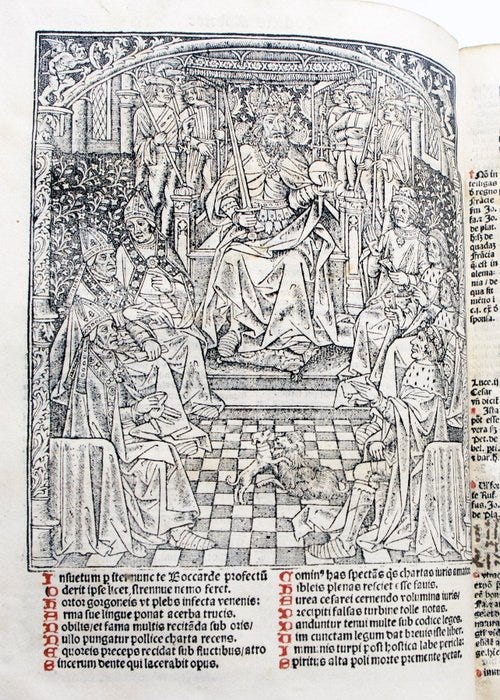 Insuetum p ster nunc te Boccarde profectū
Oderit ipse licet, strennue nemo feret.
Hortor gorgoneis vt plebs infecta venenis:
Arma sue lingue ponat acerba trucis.
Nobilis, et fama multis recitāda sub oris/
Nullo pungatur pollice charta recens.
Equoreis preceps recidat sub fluctibus/atro
Sincerum dente qui lacerabit opus.
Comin⁹ has spectās qs chartas iuris amator
Hibleis plenas resciet isse fauis.
Aurea cesarei cernendo volumina iuris/
Precipiti falsas turbine tolle notas.
Panduntur tenui multe sub codice leges.
Vim cunctam legum dat breuis iste liber.
Immunis turpi post hostica labe pericla:
Spiritus alta poli morte premente petat.
Nō in
d regno
Frācie
Jo.
de plat.
de
quadā
Frācia
est in
alema
nia / de
qua fit
sponsa.
Luce.ij
Cesar
vn dicit
Ista
pōt esse
vera
Pet. de
bel.
bar.